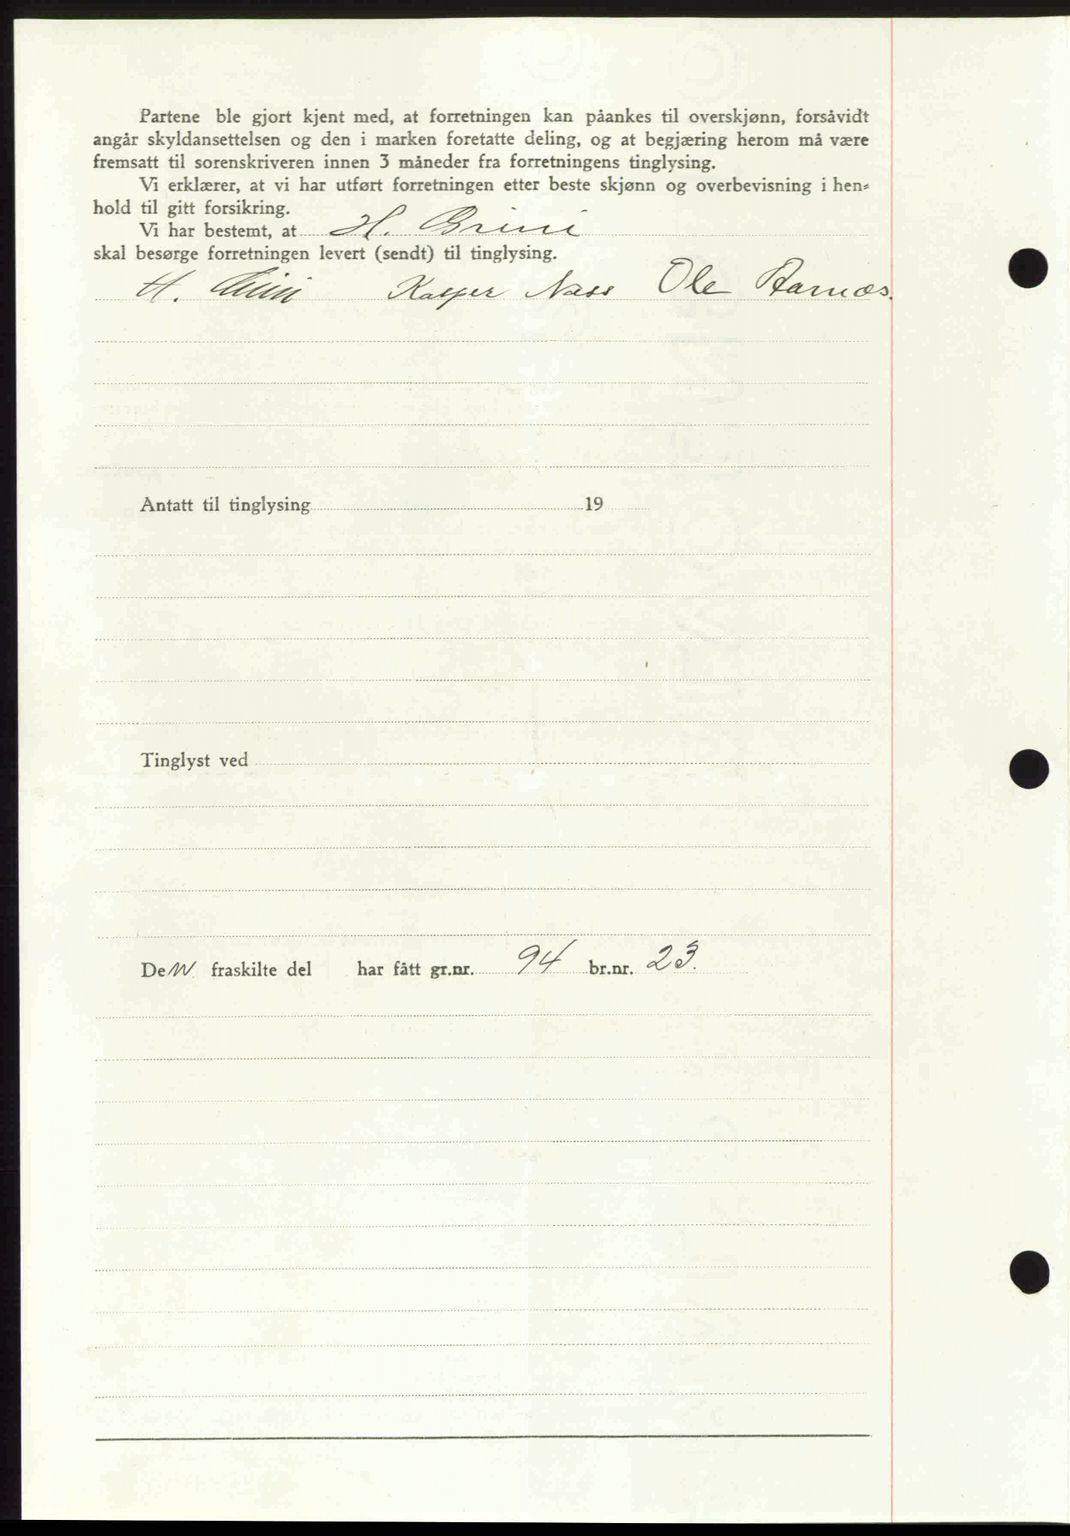 Partene ble gjort kjent med, at forretningen kan påankes til overskjønn, forsåvidt
angår skyldansettelsen og den i marken foretatte deling, og at begjæring herom må være
fremsatt til sorenskriveren innen 3 måneder fra forretningens tinglysing.
Vi erklærer, at vi har utført forretningen etter beste skjønn og overbevisning i hen-
hold til gitt forsikring.
Vi har bestemt, at H. Brini
skal besørge forretningen levert (sendt) til tinglysing.
H. Brini Kasper Næss Ole Aarnæs.
Antatt til tinglysing 19
Tinglyst ved
Den fraskilte del har fått gr.nr. 94 br.nr. 23.